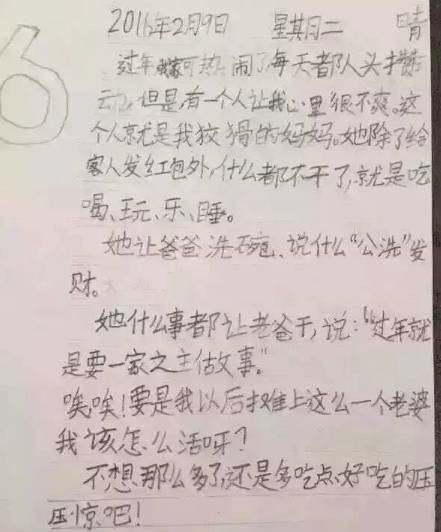 6
2016年2月9日 星期二 晴
过年我家可热闹了,每天都队人头攒
动,但是有一个人让我心里很不爽。这
个人就是我狡猾的妈妈。她除了给
客人发红包外,什么都不干了,就是吃
喝、玩、乐、睡。
她让爸爸洗碗、说什么“公洗”发
财。
她什么事都让老爸干,说:“过年就
是要一家之主做故事。”
唉唉!要是我以后摊上这么一个老婆
我该怎么活呀?
不想那么多了,还是多吃点好吃的压
压惊吧!